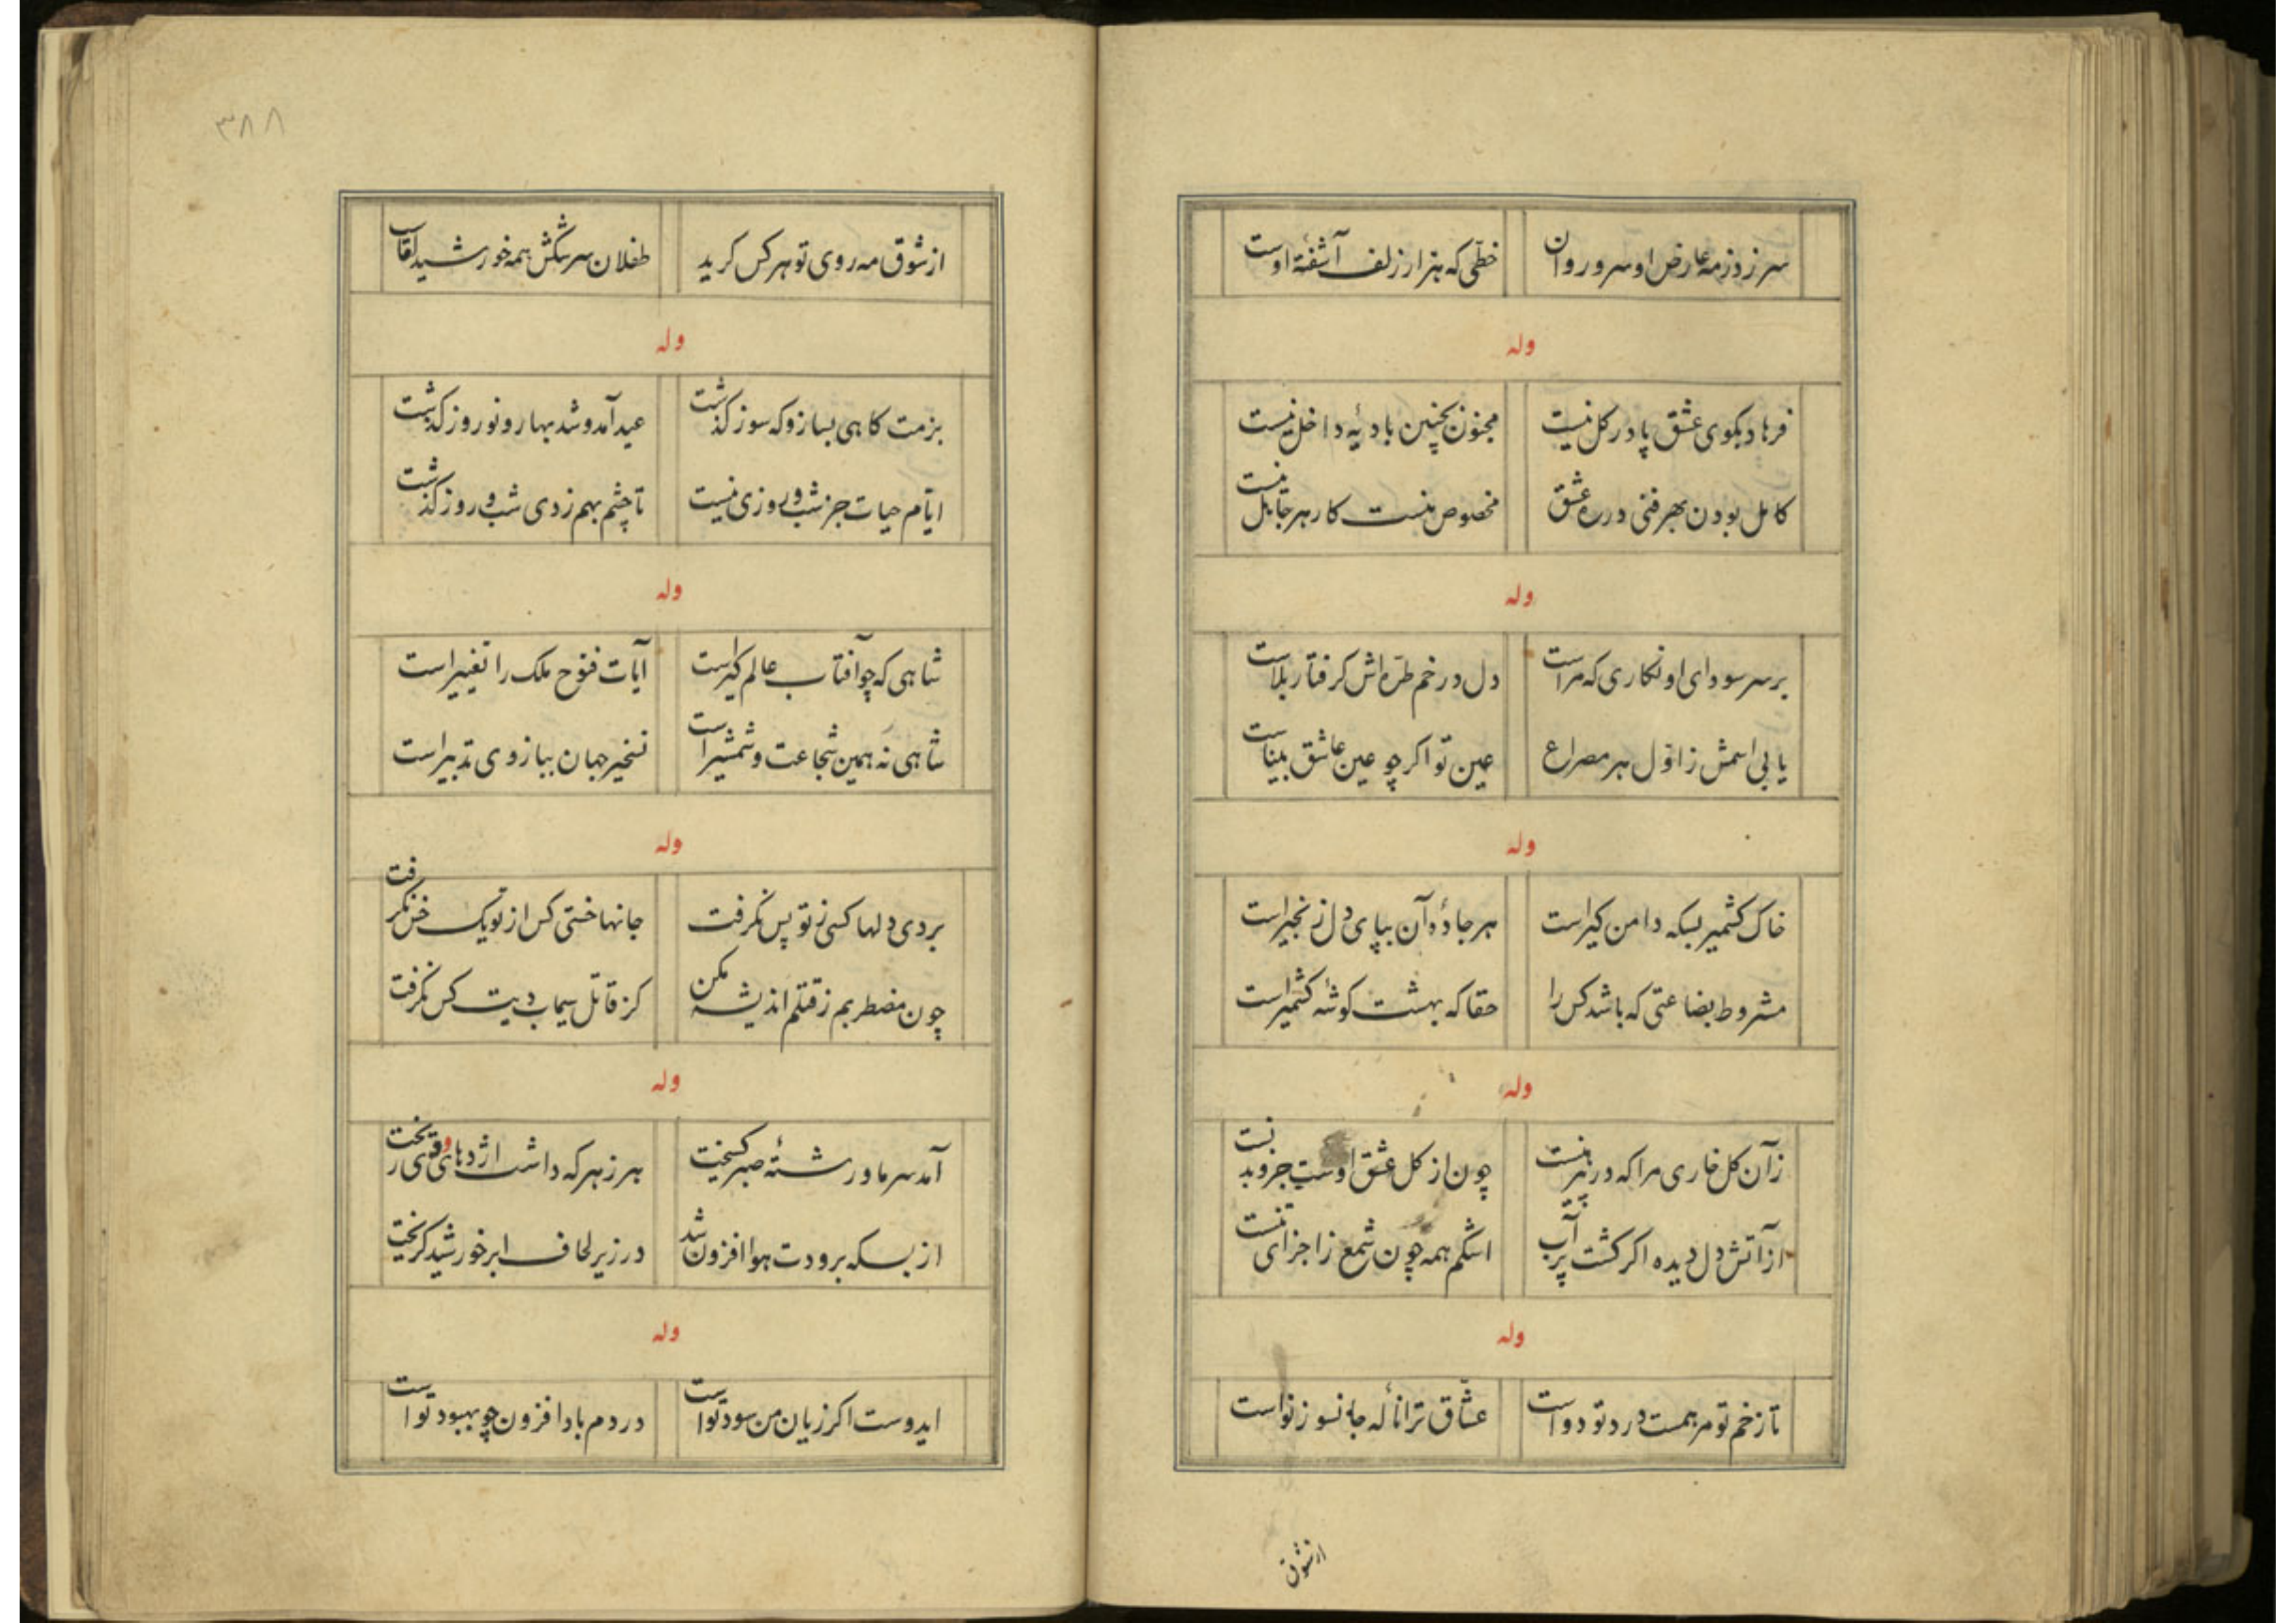 سر زد ز مه عارض او سرو روان
خطی که هزار زلف آشفتهٔ اوست
وله
فرهاد بکوی عشق پا در کل نیست
مجنون بچنین بادیهٔ داخل نیست
کامل بودن بهر فنی در ره عشق
مخصوص منست کار هر جاهل نیست
وله
بر سر سودای او نکاری که مراست
دل در خم طرّه اش کرفتار بلاست
یابی اسمش ز اوّل هر مصراع
عین تو اکر چو عین عاشق بیناست
وله
خاک کشمیر بسکه دامن کیر است
هر جادهٔ آن بپای دل زنجیر است
مشروط بضاعتی که باشد کس را
حقا که بهشت کوشهٔ کشمیر است
وله
زآن کل خاری مرا که در پیرهنست
چون از کل عشق اوست جزو بدنست
از آتش دل دیده اکر کشت پر آب
اشکم همه چون شمع ز اجزای تنست
وله
تا زخم تو مرهمست درد تو دواست
عشّاق ترا نالهٔ جانسوز نواست
از شوق
٣٨٨
از شوق مه روی تو هر کس کرید
طفلان سرشکش همه خورشید لقاست
وله
بزمت کاهی بساز و که سوز کذشت
عید آمد و شد بهار و نوروز کذشت
ایّام حیات جز شب و روزی نیست
تا چشم بهم زدی شب و روز کذشت
وله
شاهی که چو آفتاب عالم کیر است
آیات فتوح ملک را تغییر است
شاهی نه همین شجاعت و شمشیر است
تسخیر جهان ببازوی تدبیر است
وله
بردی دلها کسی ز تو پس نکرفت
جانها خستی کس از تو یک خس نکرفت
چون مضطربم ز قتلم اندیشه مکن
کز قاتل سیماب دیت کس نکرفت
وله
آمد سرما و رشتهٔ صبر کسیخت
هر زهر که داشت اژدهای دی ریخت
از بسکه برودت هوا افزون شد
در زیر لحاف ابر خورشید کریخت
وله
ایدوست اکر زیان من سود تو است
دردم بادا فزون چو بهبود تو است